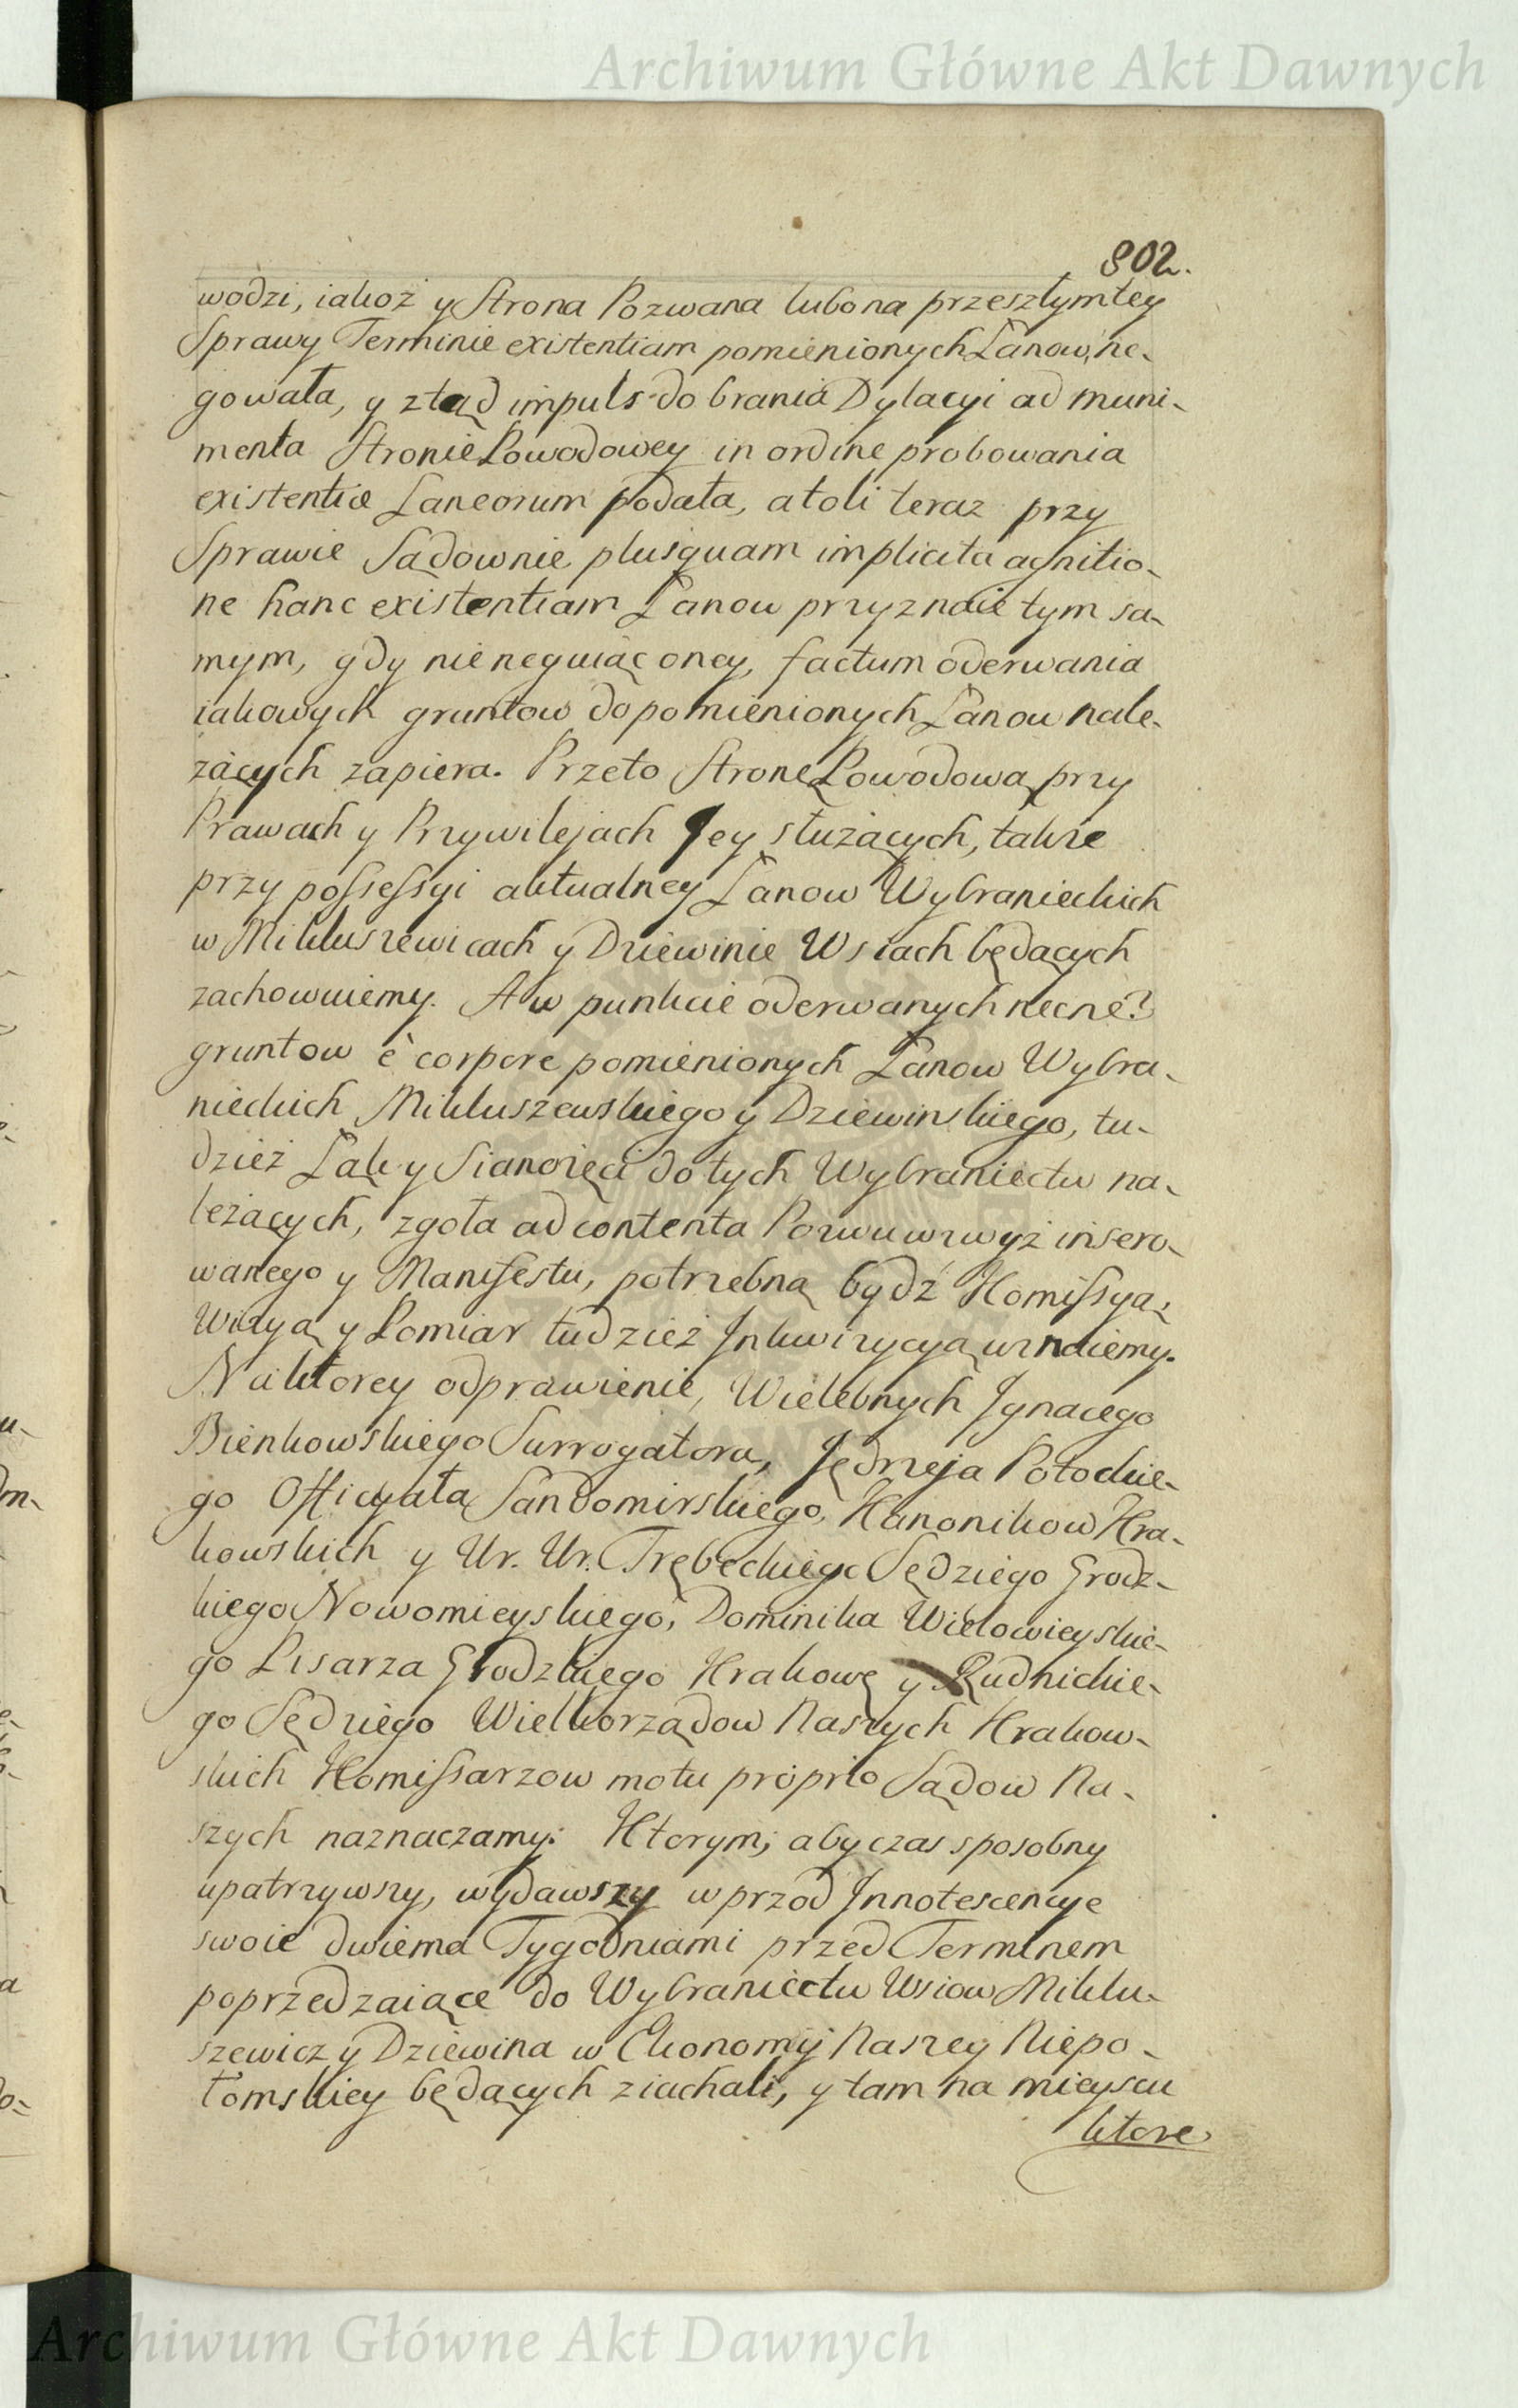 Archiwum Główne Akt Dawnych
802.
wodzi, iakoż y Strona Pozwana lubo na przeszłym tey
Sprawy Terminie existentiam pomienionych Łanow, ne-
gowała, y ztąd impuls do brania Dylacyi ad muni-
menta Stronie Powodowey in ordine probowania
existentiæ Laneorum podała, atoli teraz przy
Sprawie Sądownie plusquam implicita agnitio-
ne hanc existentiam Łanow przyznaie tym sa-
mym, gdy nie neguiąc oney, factum oderwania
iakowych gruntow do pomienionych Łanow nale-
żących zapiera. Przeto Stronę Powodową przy
Prawach y Przywilejach Jey służących, takze
przy possessyi aktualney Łanow Wybranieckich
w Mikluszewicach y Dziewinie Wsiach będących
zachowuiemy. A w punkcie oderwanych necne?
gruntow è corpore pomienionych Łanow Wybra-
nieckich Mikluszewskiego y Dziewinskiego, tu-
dzież Łąk y Sianożęci do tych Wybraniectw na-
leżących, zgoła ad contenta Pozwu wzwyż insero-
wanego y Manifestu, potrzebną bydź Kommissyą,
Wizyą y Pomiar tudzież Inkwizycyą uznaiemy.
Na ktorey odprawienie, Wielebnych Ignacego
Bienkowskiego Surrogatora, Jędrzeja Potockie-
go Officyała Sandomirskiego, Kanonikow Kra-
kowskich y Ur. Ur. Trębeckiego Sędziego Grodz-
kiego Nowomieyskiego, Dominika Wielowieyskie-
go Pisarza Grodzkiego Krakowę y Rudnickie-
go Sędziego Wielkorządow Naszych Krakow-
skich Komissarzow motu proprio Sądow Na-
szych naznaczamy: Ktorym; aby czas sposobny
upatrzywszy, wydawszy w przod Innotescencye
swoie dwiema Tygodniami przed Terminem
poprzedzaiące do Wybraniectw Wsiow Miklu-
szewicz y Dziewina w Ekonomij Naszey Niepo-
łomskiey będących ziachali, y tam na mieyscu
ktore
Archiwum Główne Akt Dawnych